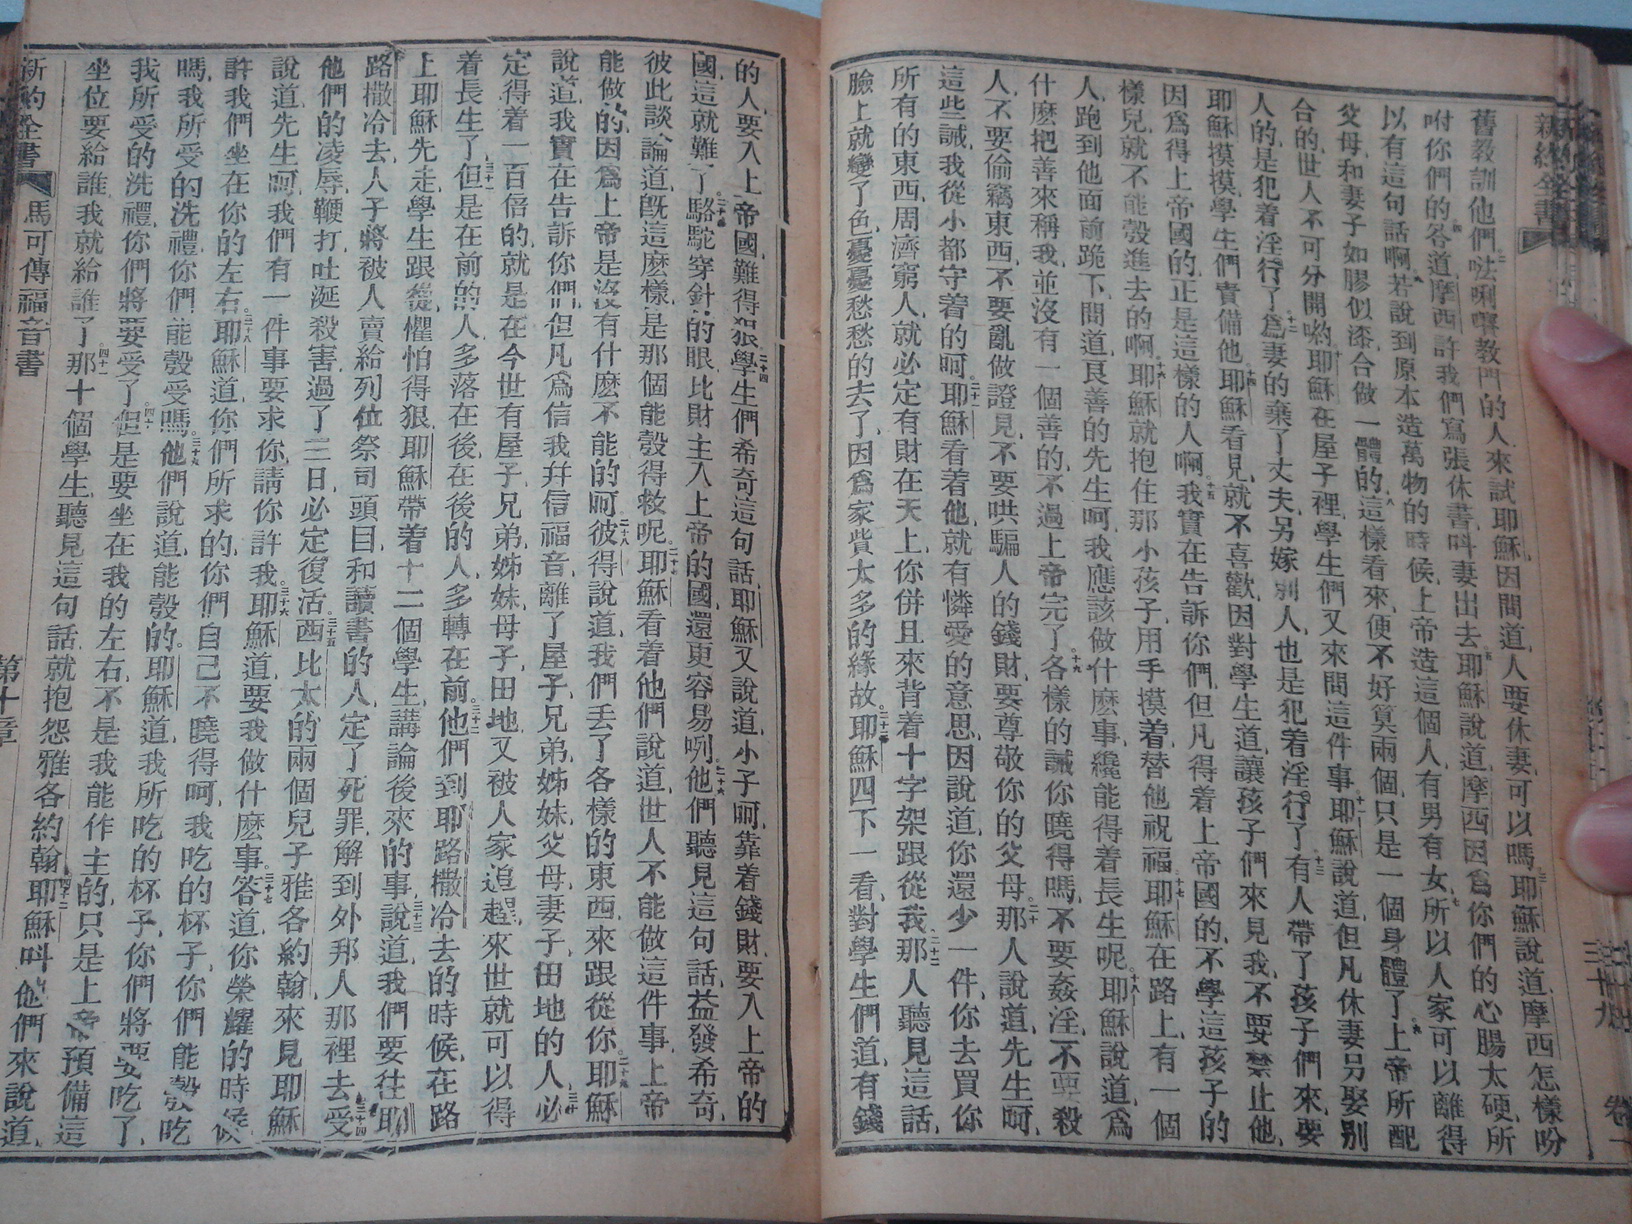 舊教訓他們㖿唎㘔教門的人來試耶穌因問道人要休妻可以嗎耶穌說道摩西怎樣吩
咐你們的各道摩西許我們寫張休書呌妻出去耶穌說道摩西因爲你們的心腸太硬所
以有這句話啊若說到原本造萬物的時候上帝造這個人有男有女所以人家可以離得
父母和妻子如膠似漆合做一體的這樣看來便不好算兩個只是一個身體了上帝所配
合的世人不可分開喲耶穌在屋子裡學生們又來問這件事耶穌說道但凡休妻另娶別
人的是犯着淫行了爲妻的棄了丈夫另嫁別人也是犯着淫行了有人帶了孩子們來要
耶穌摸摸學生們責備他耶穌看見就不喜歡因對學生道讓孩子們來見我不要禁止他
因爲得上帝國的正是這樣的人啊我實在告訴你們但凡得着上帝國的不學這孩子的
樣兒就不能彀進去的啊耶穌就抱住那小孩子用手摸着替他祝福耶穌在路上有一個
人跑到他面前跪下問道良善的先生呵我應該做什麽事纔能得着長生呢耶穌說道爲
什麽把善來稱我並沒有一個善的不過上帝完了各樣的誡你曉得嗎不要姦淫不要殺
人不要偷竊東西不要亂做證見不要哄騙人的錢財要尊敬你的父母那人說道先生呵
這些誡我從小都守着的呵耶穌看着他就有憐愛的意思因說道你還少一件你去買你
所有的東西周濟窮人就必定有財在天上你併且來背着十字架跟從我那人聽見這話
臉上就變了色憂憂愁愁的去了因爲家貲太多的緣故耶穌四下一看對學生們道有錢
的人要入上帝國難得狠學生們希奇這句話耶穌又說道小子呵靠着錢財要入上帝的
國這就難了駱駝穿針的眼比財主入上帝的國還更容易咧他們聽見這句話益發希奇
彼此談論道旣這麽樣是那個能彀得救呢耶穌看着他們說道世人不能做這件事上帝
能做的因爲上帝是沒有什麽不能的呵彼得說道我們丟了各樣的東西來跟從你耶穌
說道我實在告訴你們但凡爲信我幷信福音離了屋子兄弟姊妹父母妻子田地的人必
定得着一百倍的就是在今世有屋子兄弟姊妹母子田地又被人家追趕來世就可以得
着長生了但是在前的人多落在後在後的人多轉在前他們到耶路撒冷去的時候在路
上耶穌先走學生跟從懼怕得狠耶穌帶着十二個學生講論後來的事說道我們要往耶
路撒冷去人子將被人賣給列位祭司頭目和讀書的人定了死罪解到外邦人那裡去受
他們的凌辱鞭打吐涎殺害過了三日必定復活西比太的兩個兒子雅各約翰來見耶穌
說道先生呵我們有一件事要求你請你許我耶穌道要我做什麽事答道你榮耀的時候
許我們坐在你的左右耶穌道你們所求的你們自己不曉得呵我吃的杯子你們能彀吃
嗎我所受的洗禮你們能彀受嗎他們說道能彀的耶穌道我所吃的杯子你們將要吃了
我所受的洗禮你們將要受了但是要坐在我的左右不是我能作主的只是上帝預備這
坐位要給誰我就給誰了那十個學生聽見這句話就抱怨雅各約翰耶穌呌他們來說道
新約全書 馬可傳福音書 第十章